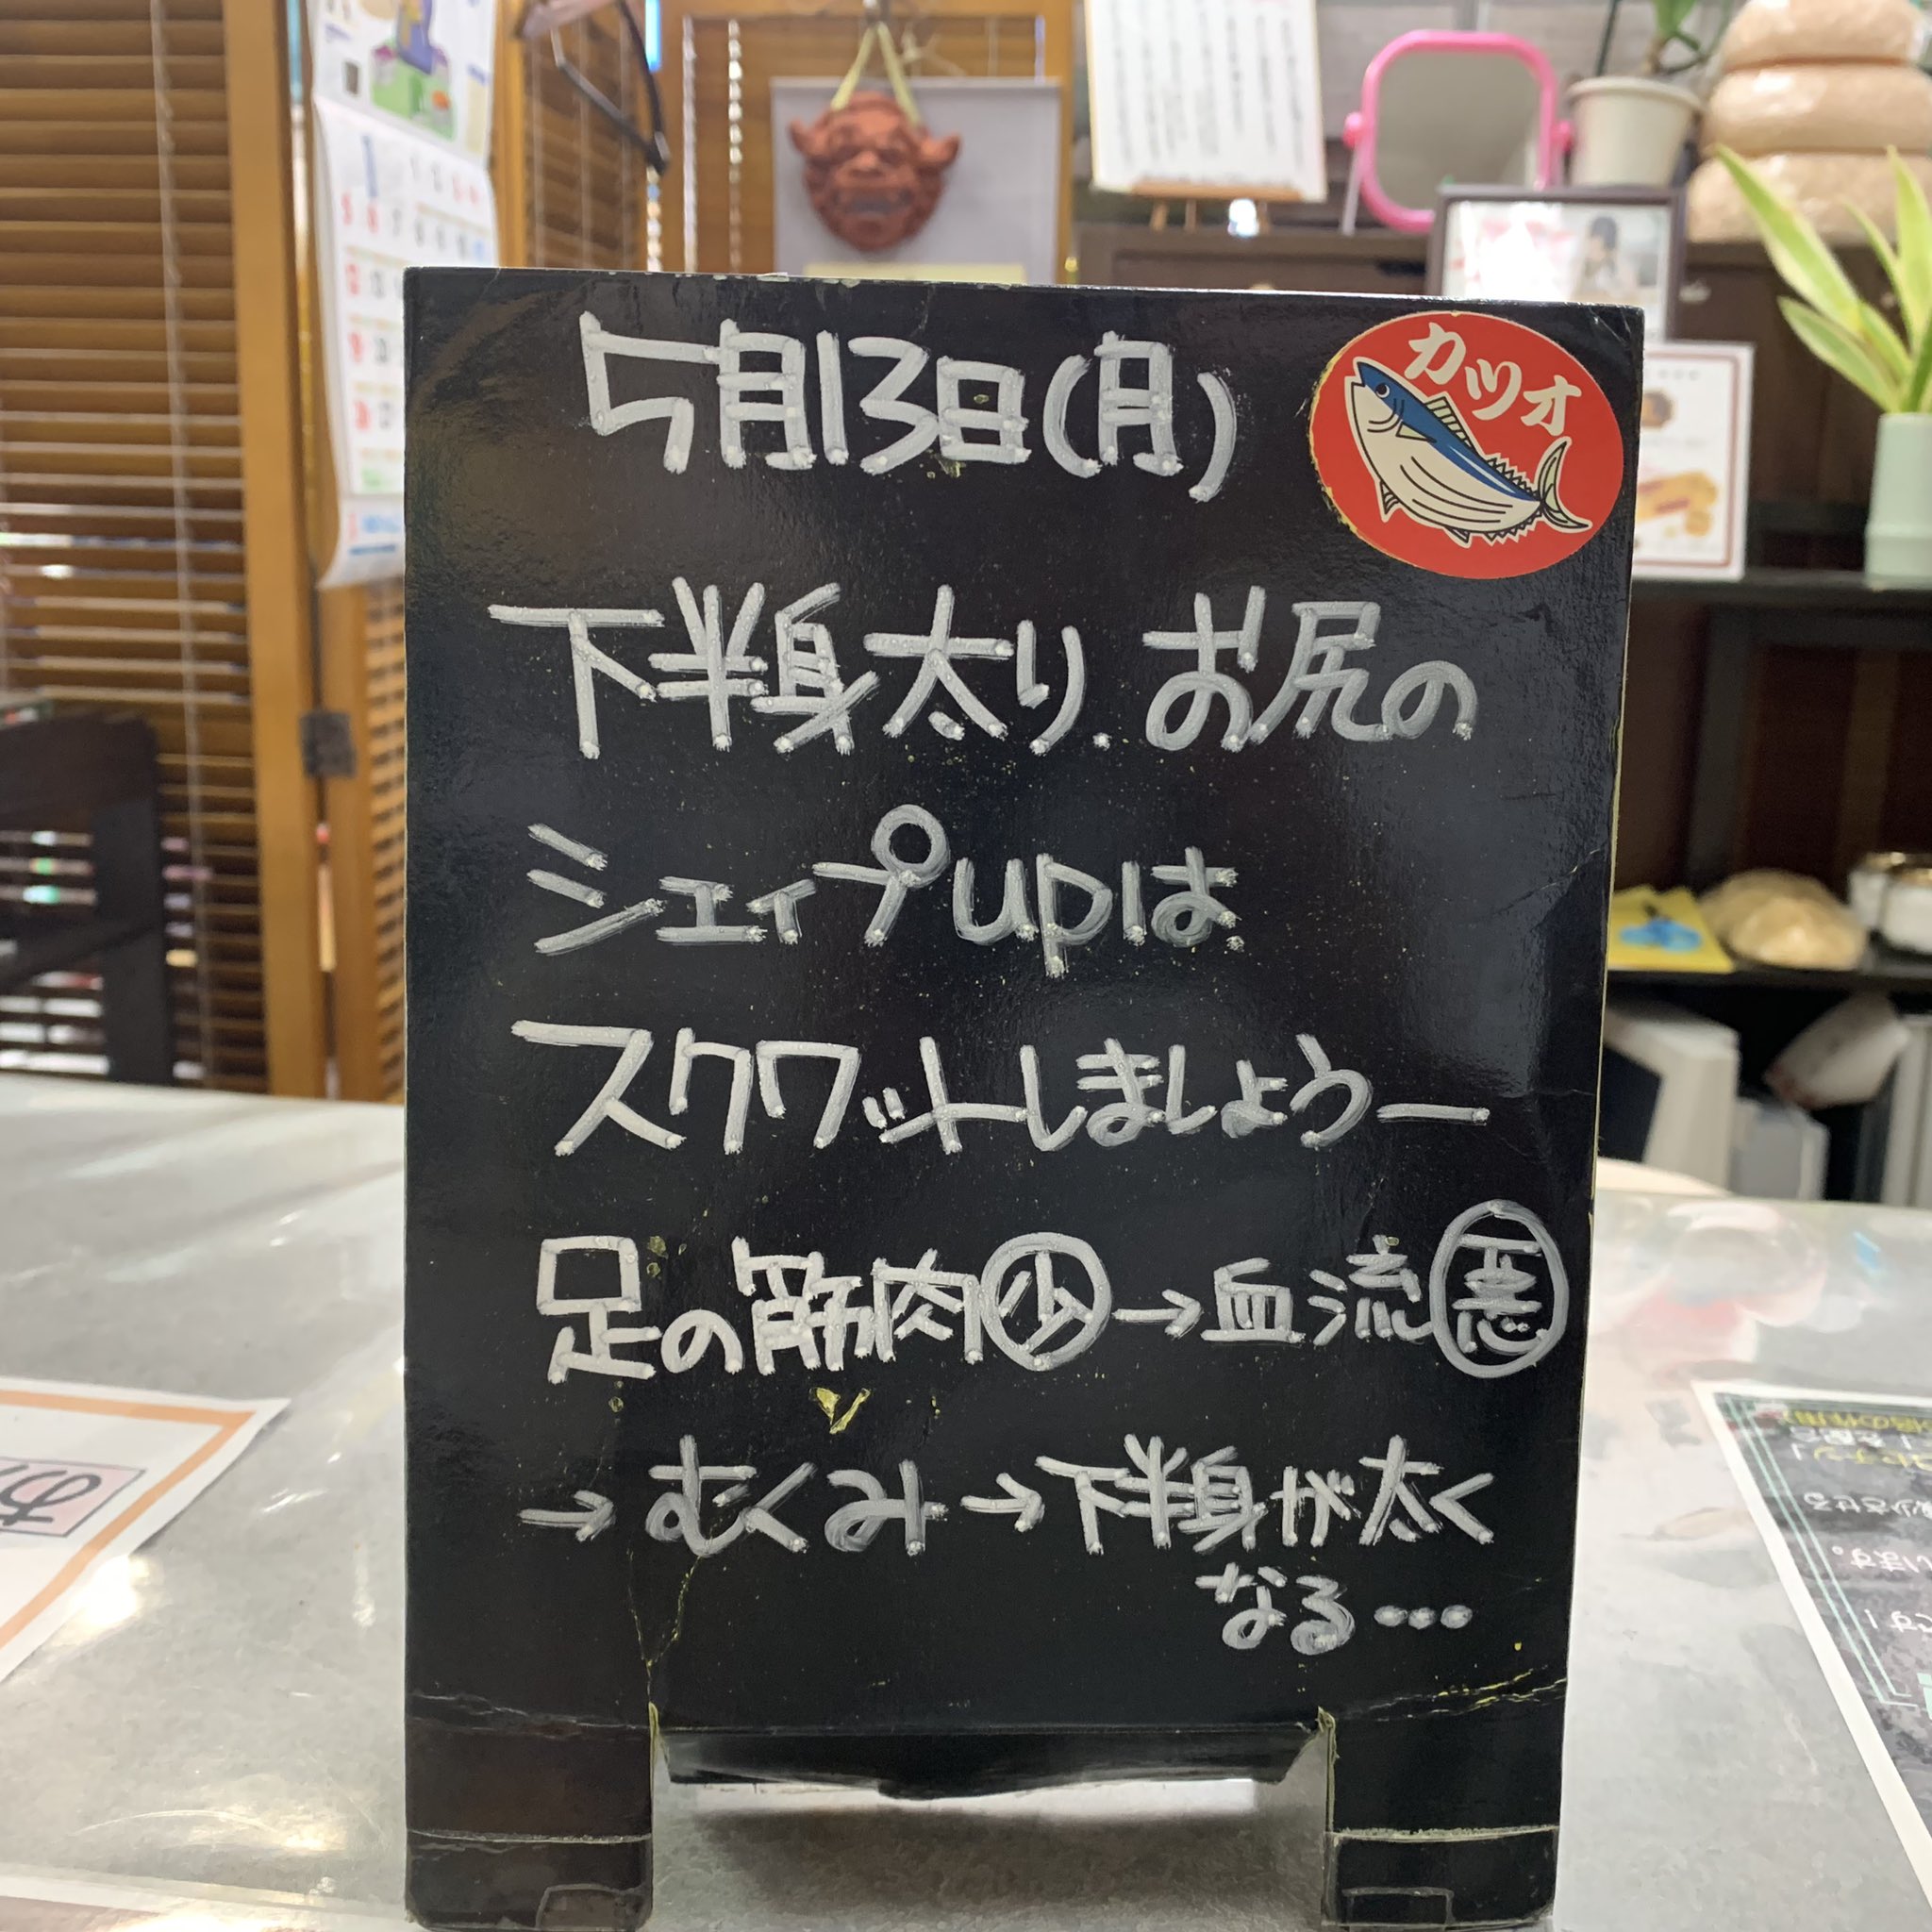 5月13日(月)
カツオ
下半身太り.お尻の
シェイプupは
スクワットしましょうー
足の筋肉少→血流悪
→むくみ→下半身が太く
なる…